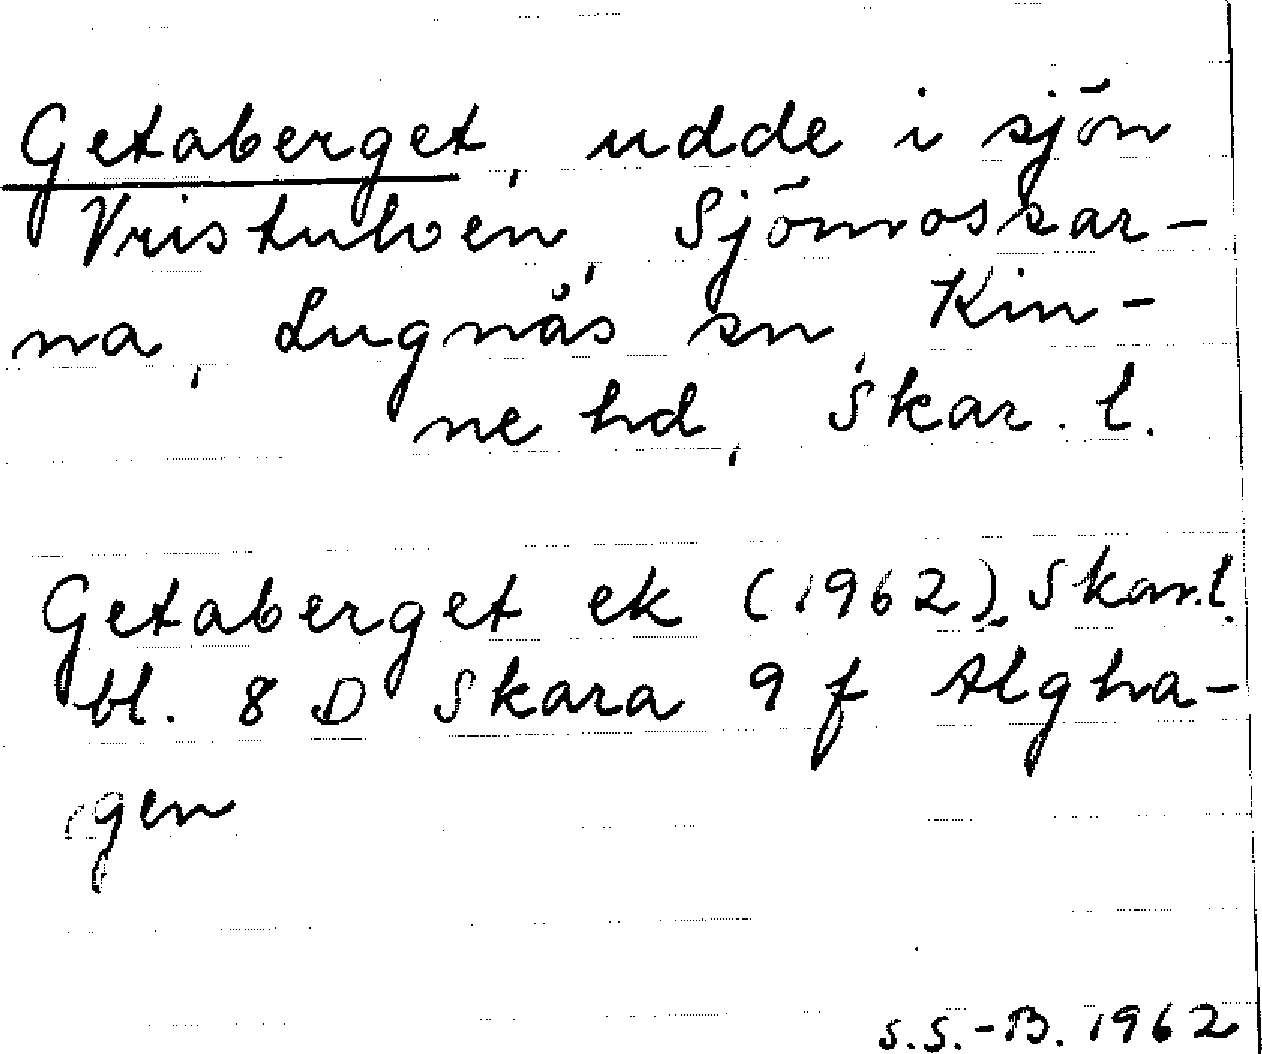 Getaberget, udde i sjön
Vristulven, Sjömossar-
na, Lugnås sn, Kin-
ne hd, Skar. l.
Getaberget ek (1962) Skar.l.
bl. 8 D Skara 9 f Älgha-
gen
S.S.-B. 1962